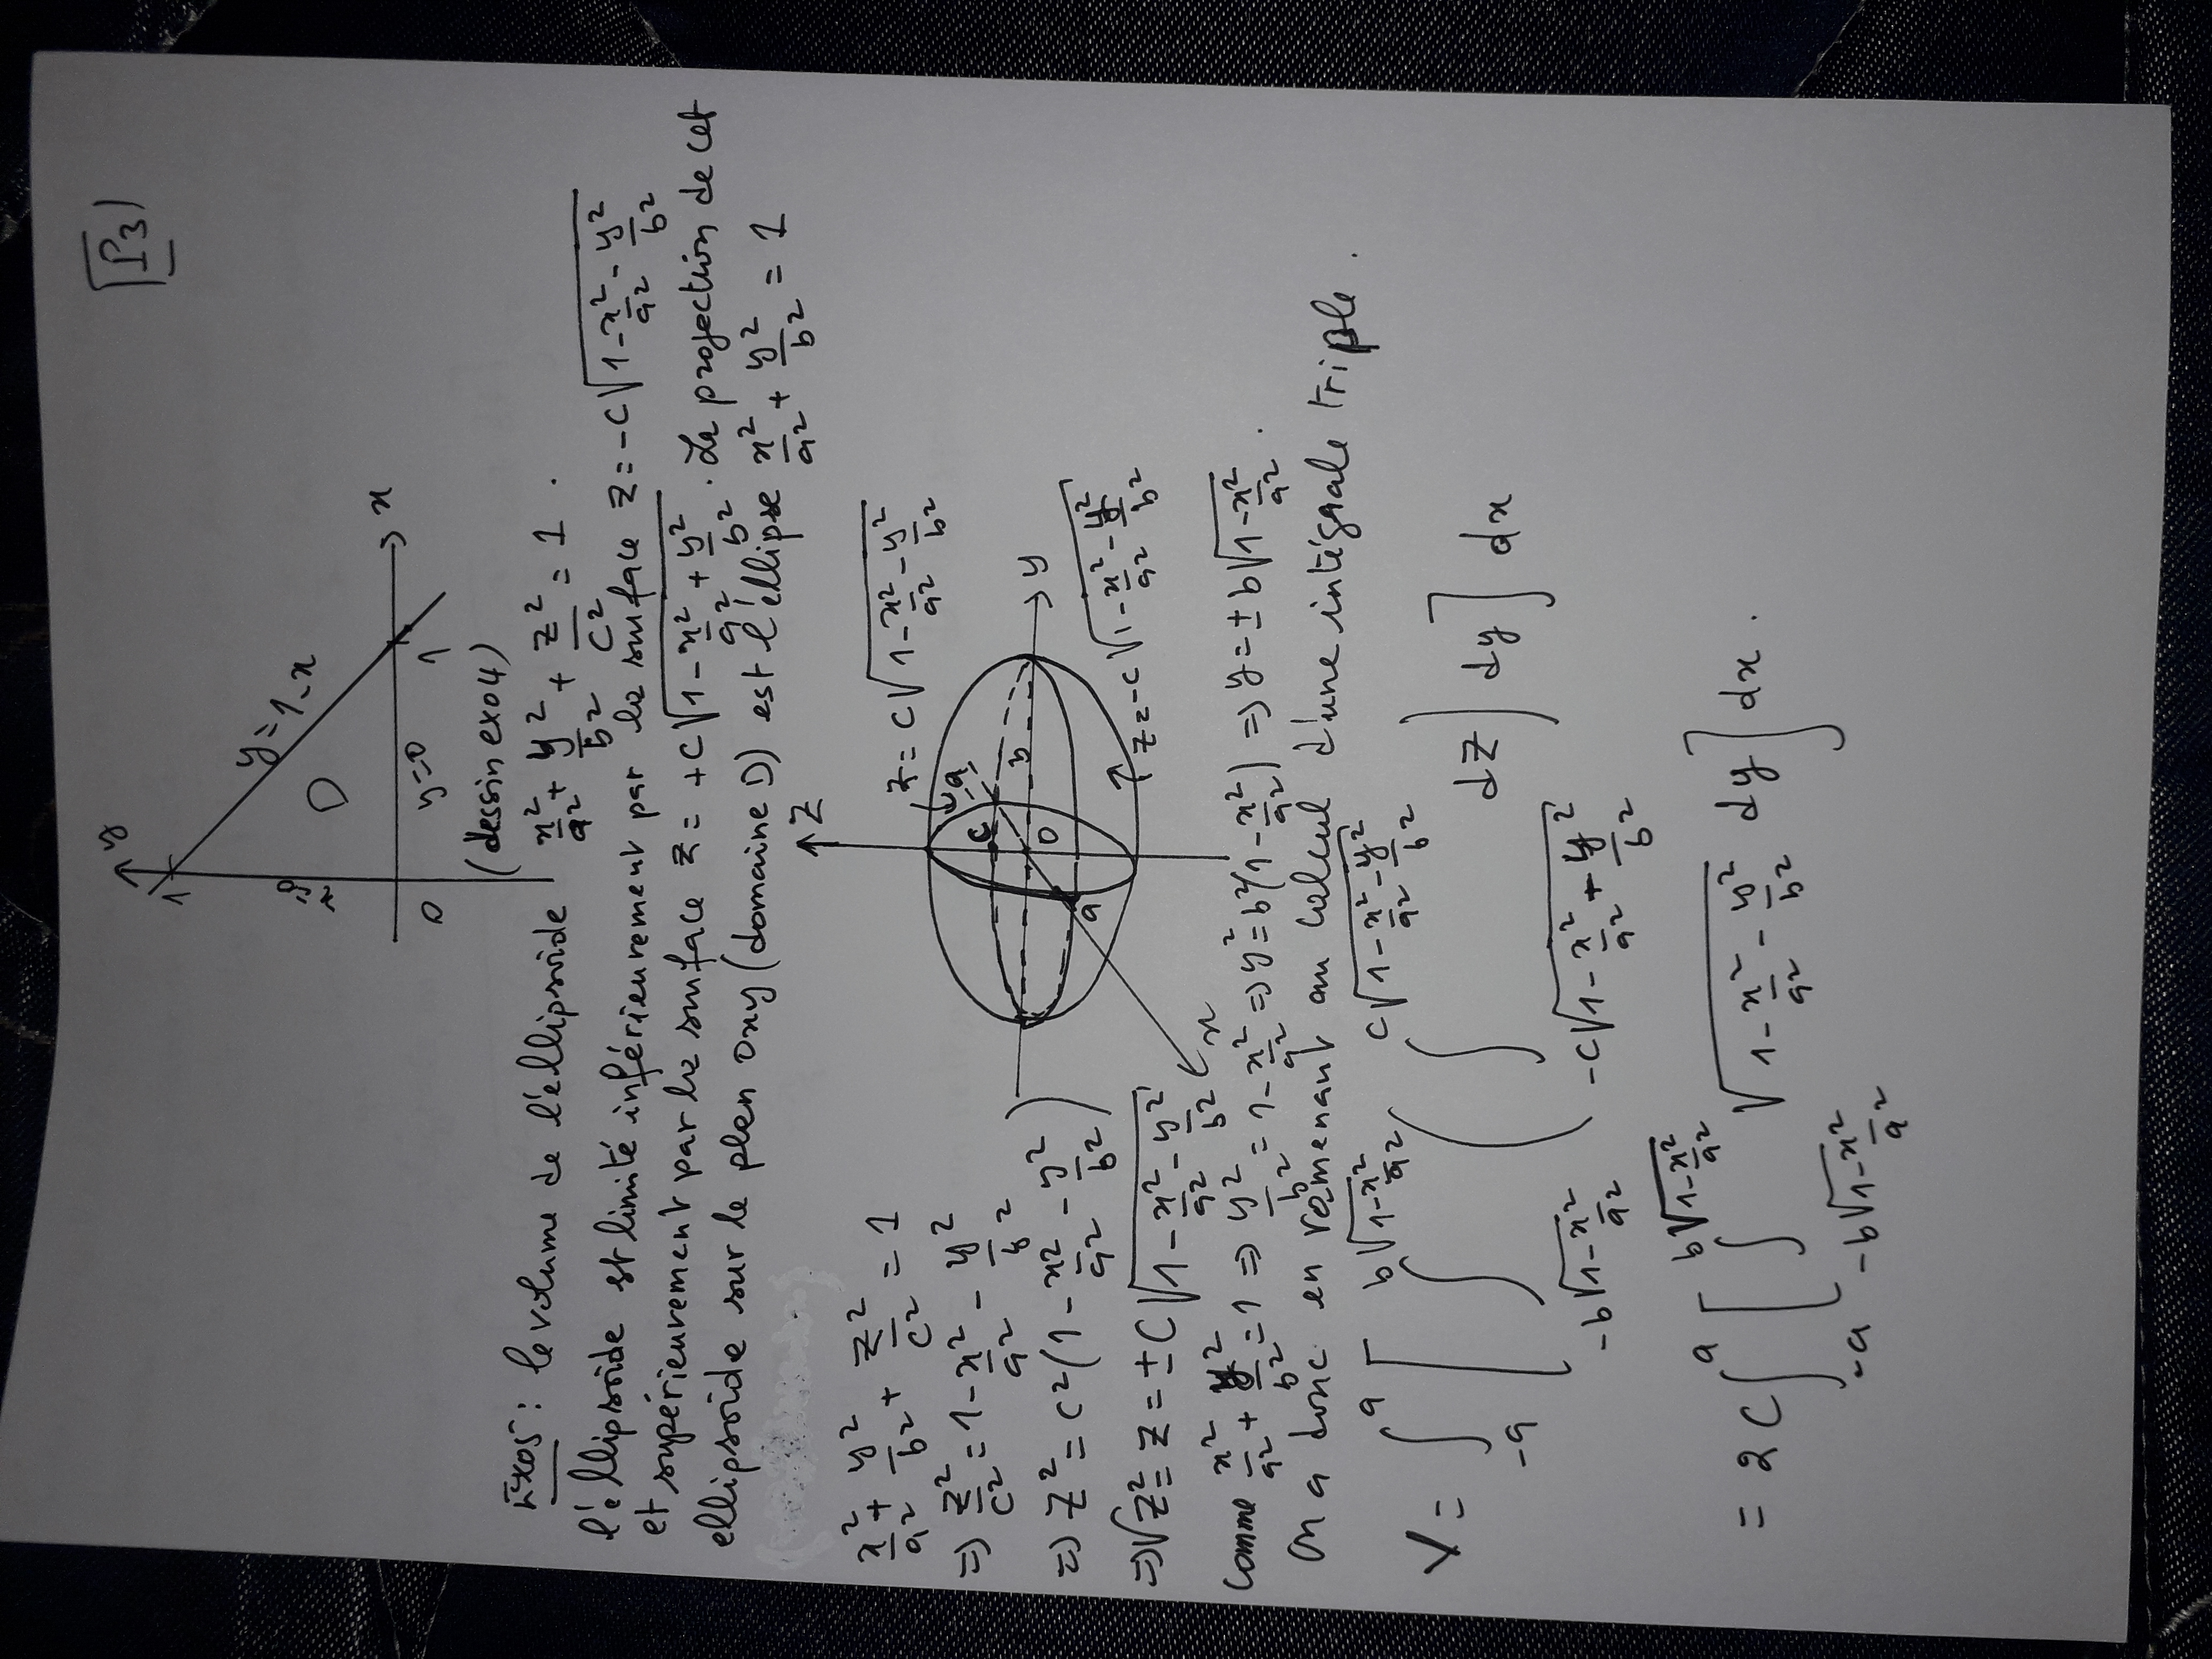 P3
y
1
y=1-x
D
x=0
0
y=0
1
x
(dessin exo4)
Exo5: le volume de l'éllipsoide x²/a² + y²/b² + z²/c² = 1.
l'éllipsoide est limité inférieurement par la surface z = -c√(1-x²/a²-y²/b²)
et supérieurement par la surface z = +c√(1-x²/a²+y²/b²). La projection de cet
ellipsoide sur le plan oxy (domaine D) est l'éllipse x²/a² + y²/b² = 1
x²/a² + y²/b² + z²/c² = 1
⇒ z²/c² = 1 - x²/a² - y²/b²
⇒ z² = c²(1 - x²/a² - y²/b²)
⇒ √z² = z = ±c√(1 - x²/a² - y²/b²)
z
z = c√(1-x²/a²-y²/b²)
-a
c
b
0
y
a
x
z=-c√(1-x²/a²-y²/b²)
Comme x²/a² + y²/b² = 1 ⇒ y²/b² = 1 - x²/a² ⇒ y² = b²(1-x²/a²) ⇒ y = ±b√(1-x²/a²).
On a donc en ramenant au calcul d'une intégrale triple.
V = ∫_{-a}^{a} [ ∫_{-b√(1-x²/a²)}^{b√(1-x²/a²)} ( ∫_{-c√(1-x²/a²+y²/b²)}^{c√(1-x²/a²-y²/b²)} dz ) dy ] dx
= 2c ∫_{-a}^{a} [ ∫_{-b√(1-x²/a²)}^{b√(1-x²/a²)} √(1-x²/a²-y²/b²) dy ] dx.